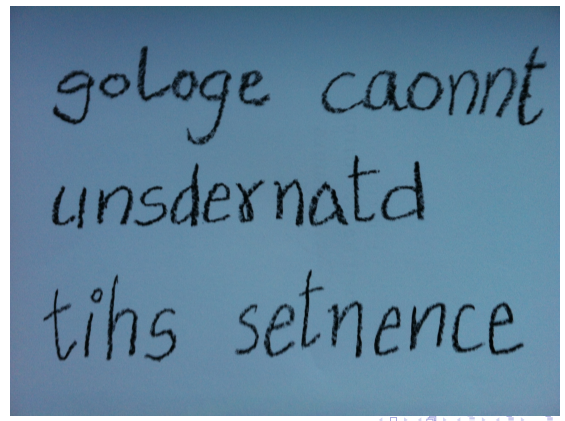 gologe caonnt
unsdernatd
tihs setnence